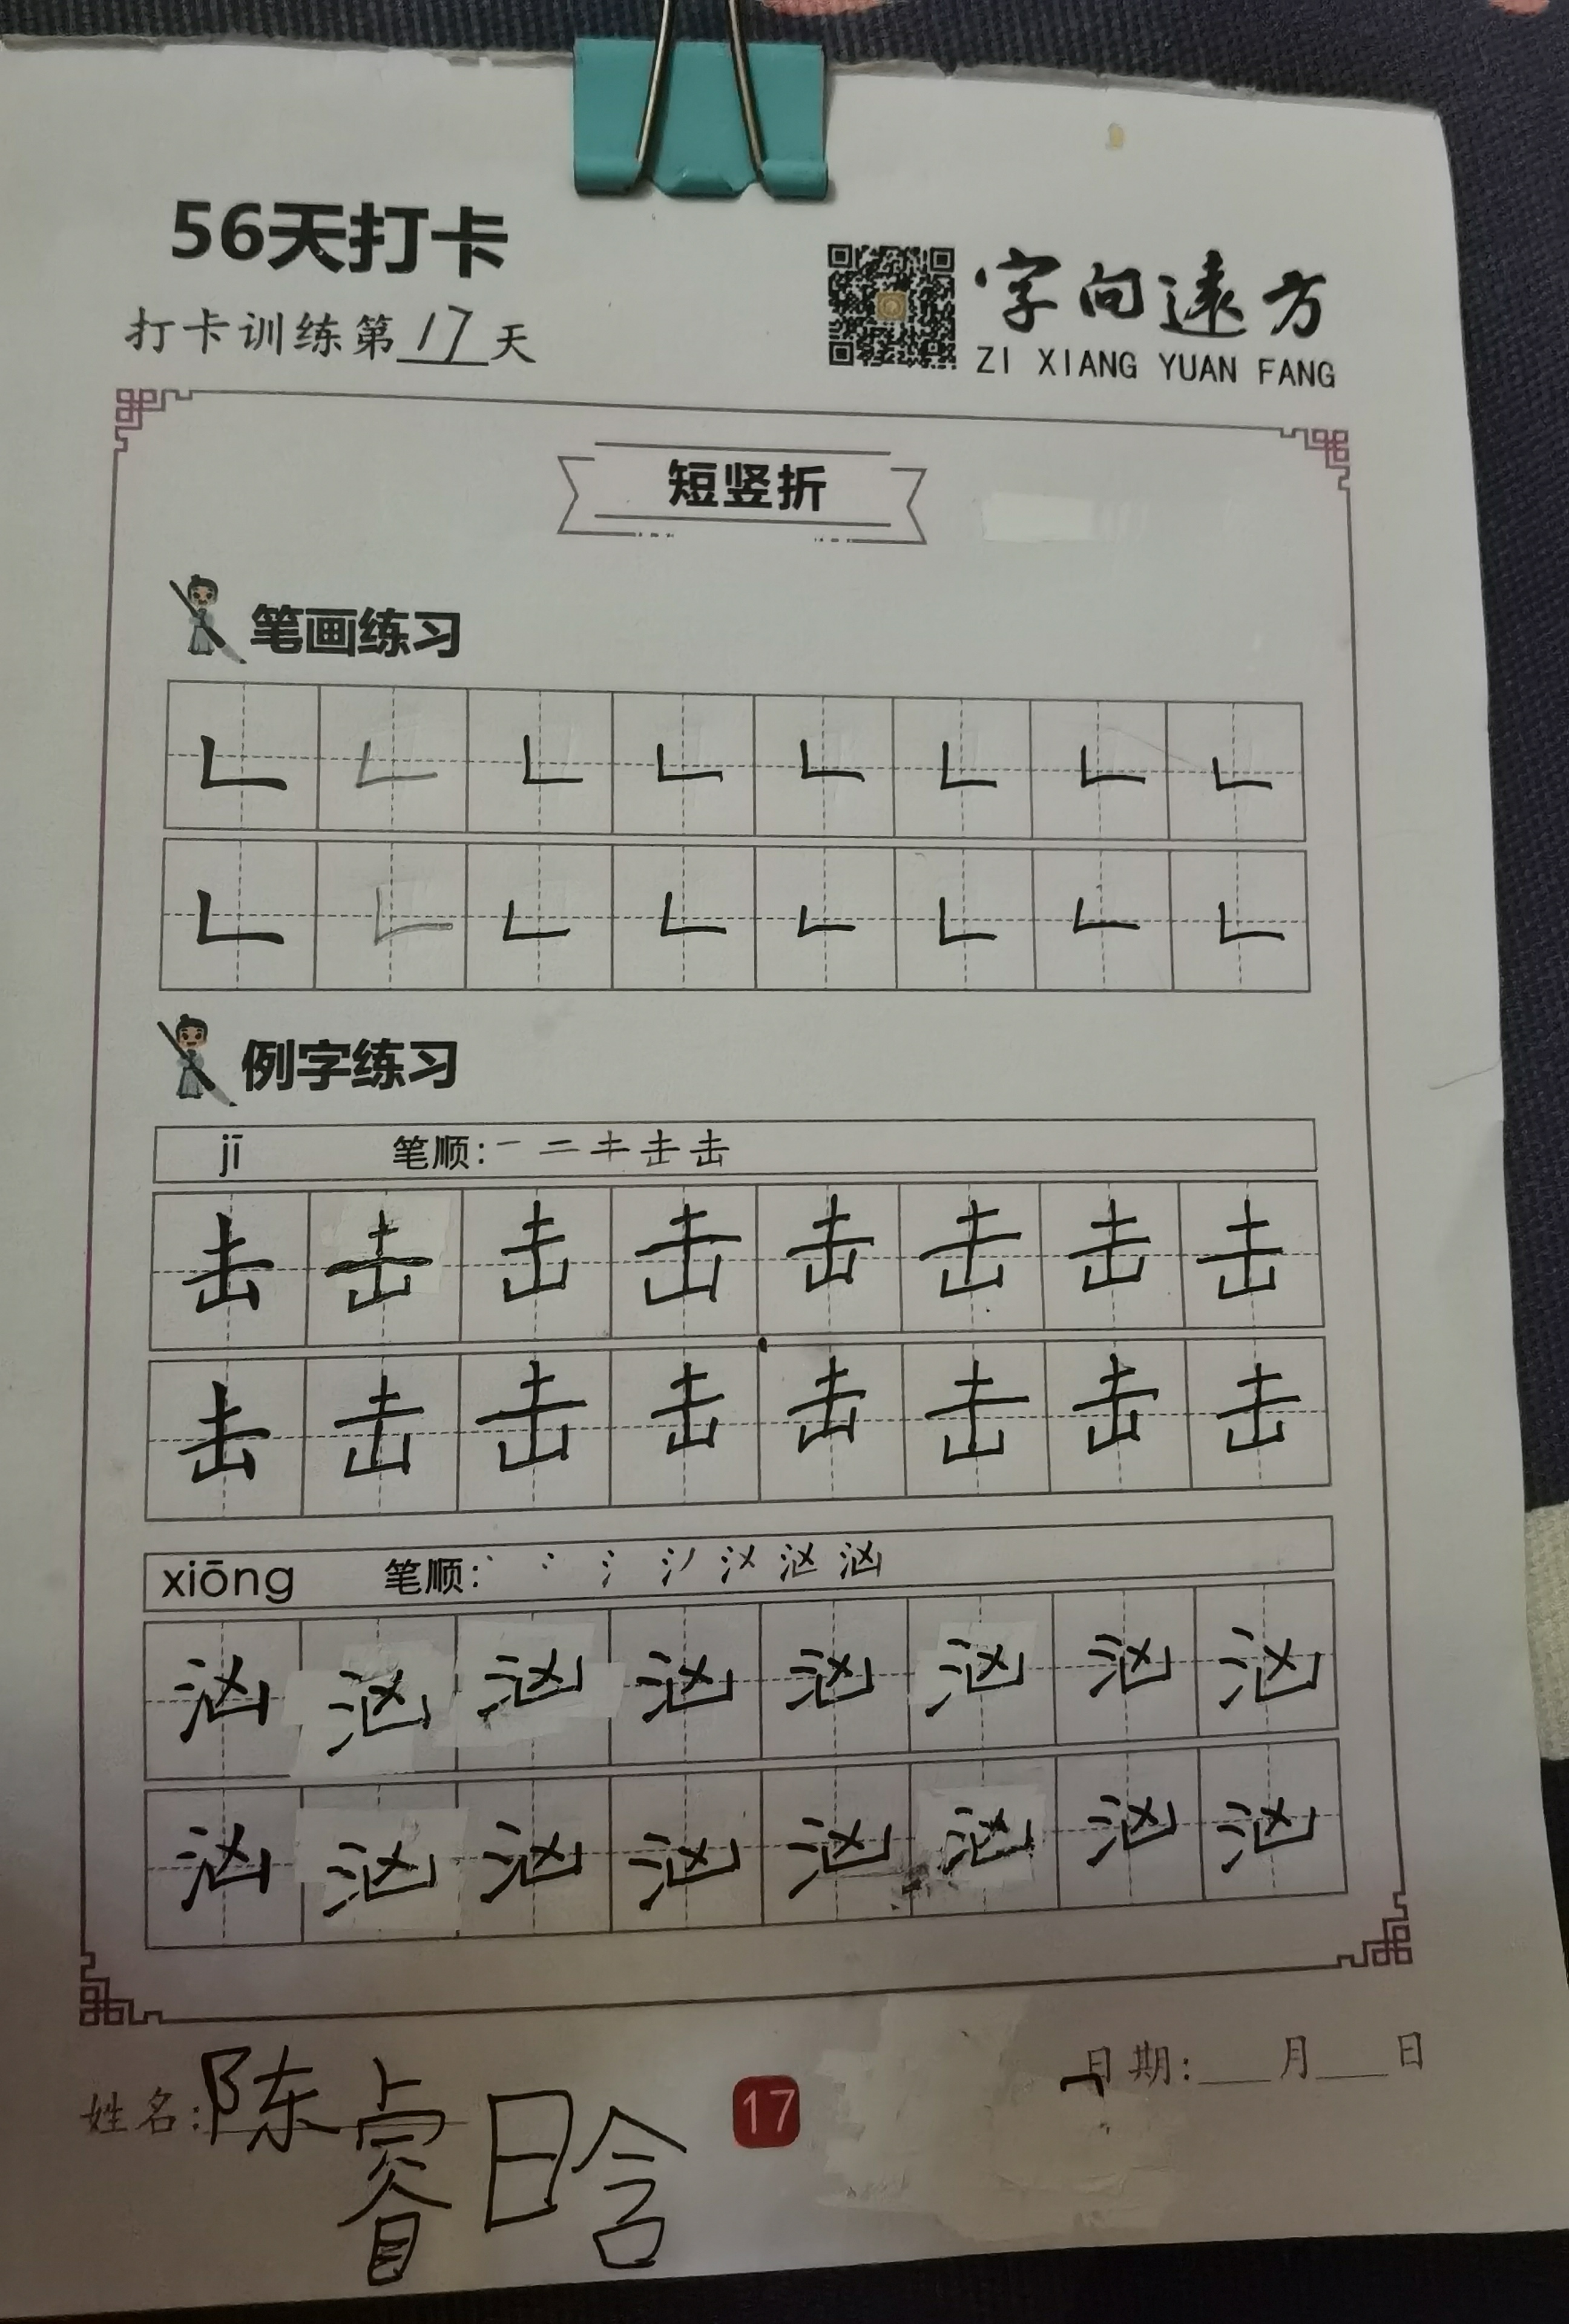 56天打卡
打卡训练第17天
字向远方
ZI XIANG YUAN FANG
短竖折
笔画练习
𠃊 𠃊 𠃊 𠃊 𠃊 𠃊 𠃊 𠃊
𠃊 𠃊 𠃊 𠃊 𠃊 𠃊 𠃊 𠃊
例字练习
jī 笔顺: 一 二 キ 击 击
击 击 击 击 击 击 击 击
击 击 击 击 击 击 击 击
xiōng 笔顺: 丶 冫 氵 汹
汹 汹 汹 汹 汹 汹 汹 汹
汹 汹 汹 汹 汹 汹 汹 汹
姓名: 陈睿晗 17 日期: 月 日